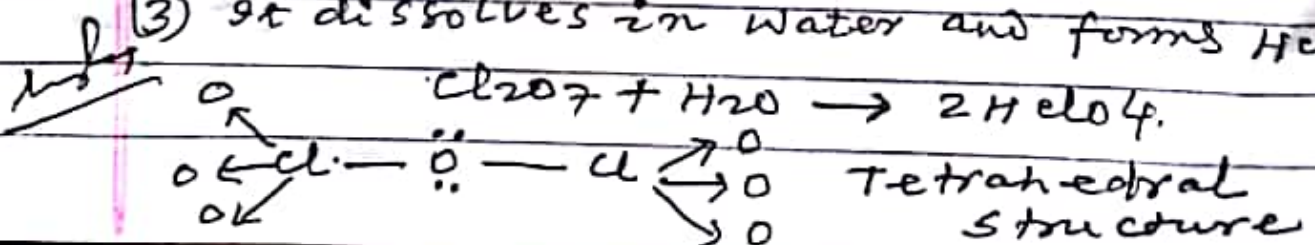 (3) It dissolves in water and forms HC
Cl2O7 + H2O → 2HClO4.
O
O ← Cl — Ö — Cl → O Tetrahedral
O O structure
O